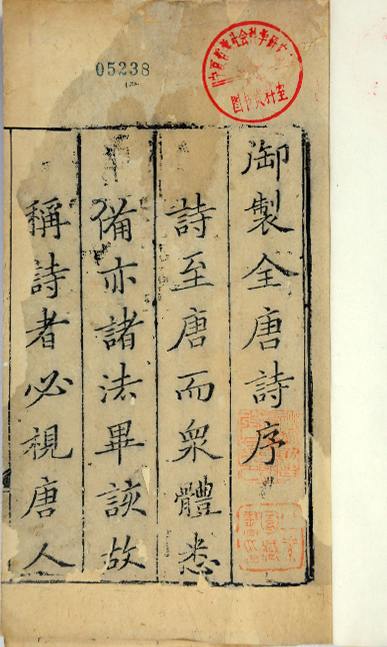 05238
御製全唐詩序
詩至唐而衆體悉
備亦諸法畢該故
稱詩者必視唐人